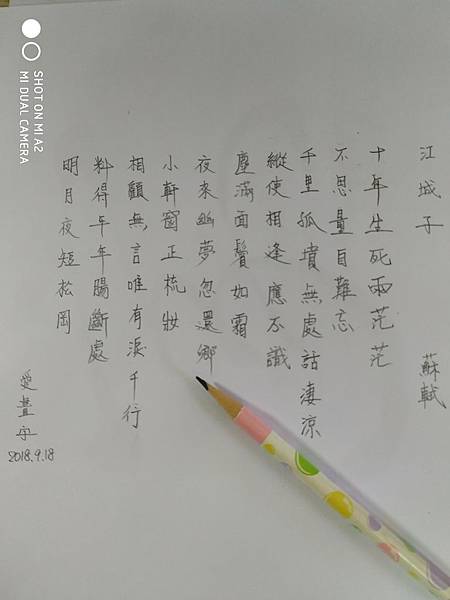 SHOT ON MI A2
MI DUAL CAMERA
江城子 蘇軾
十年生死兩茫茫
不思量自難忘
千里孤墳無處話淒涼
縱使相逢應不識
塵滿面鬢如霜
夜來幽夢忽還鄉
小軒窗正梳妝
相顧無言唯有淚千行
料得年年腸斷處
明月夜短松岡
愛
2018.9.18